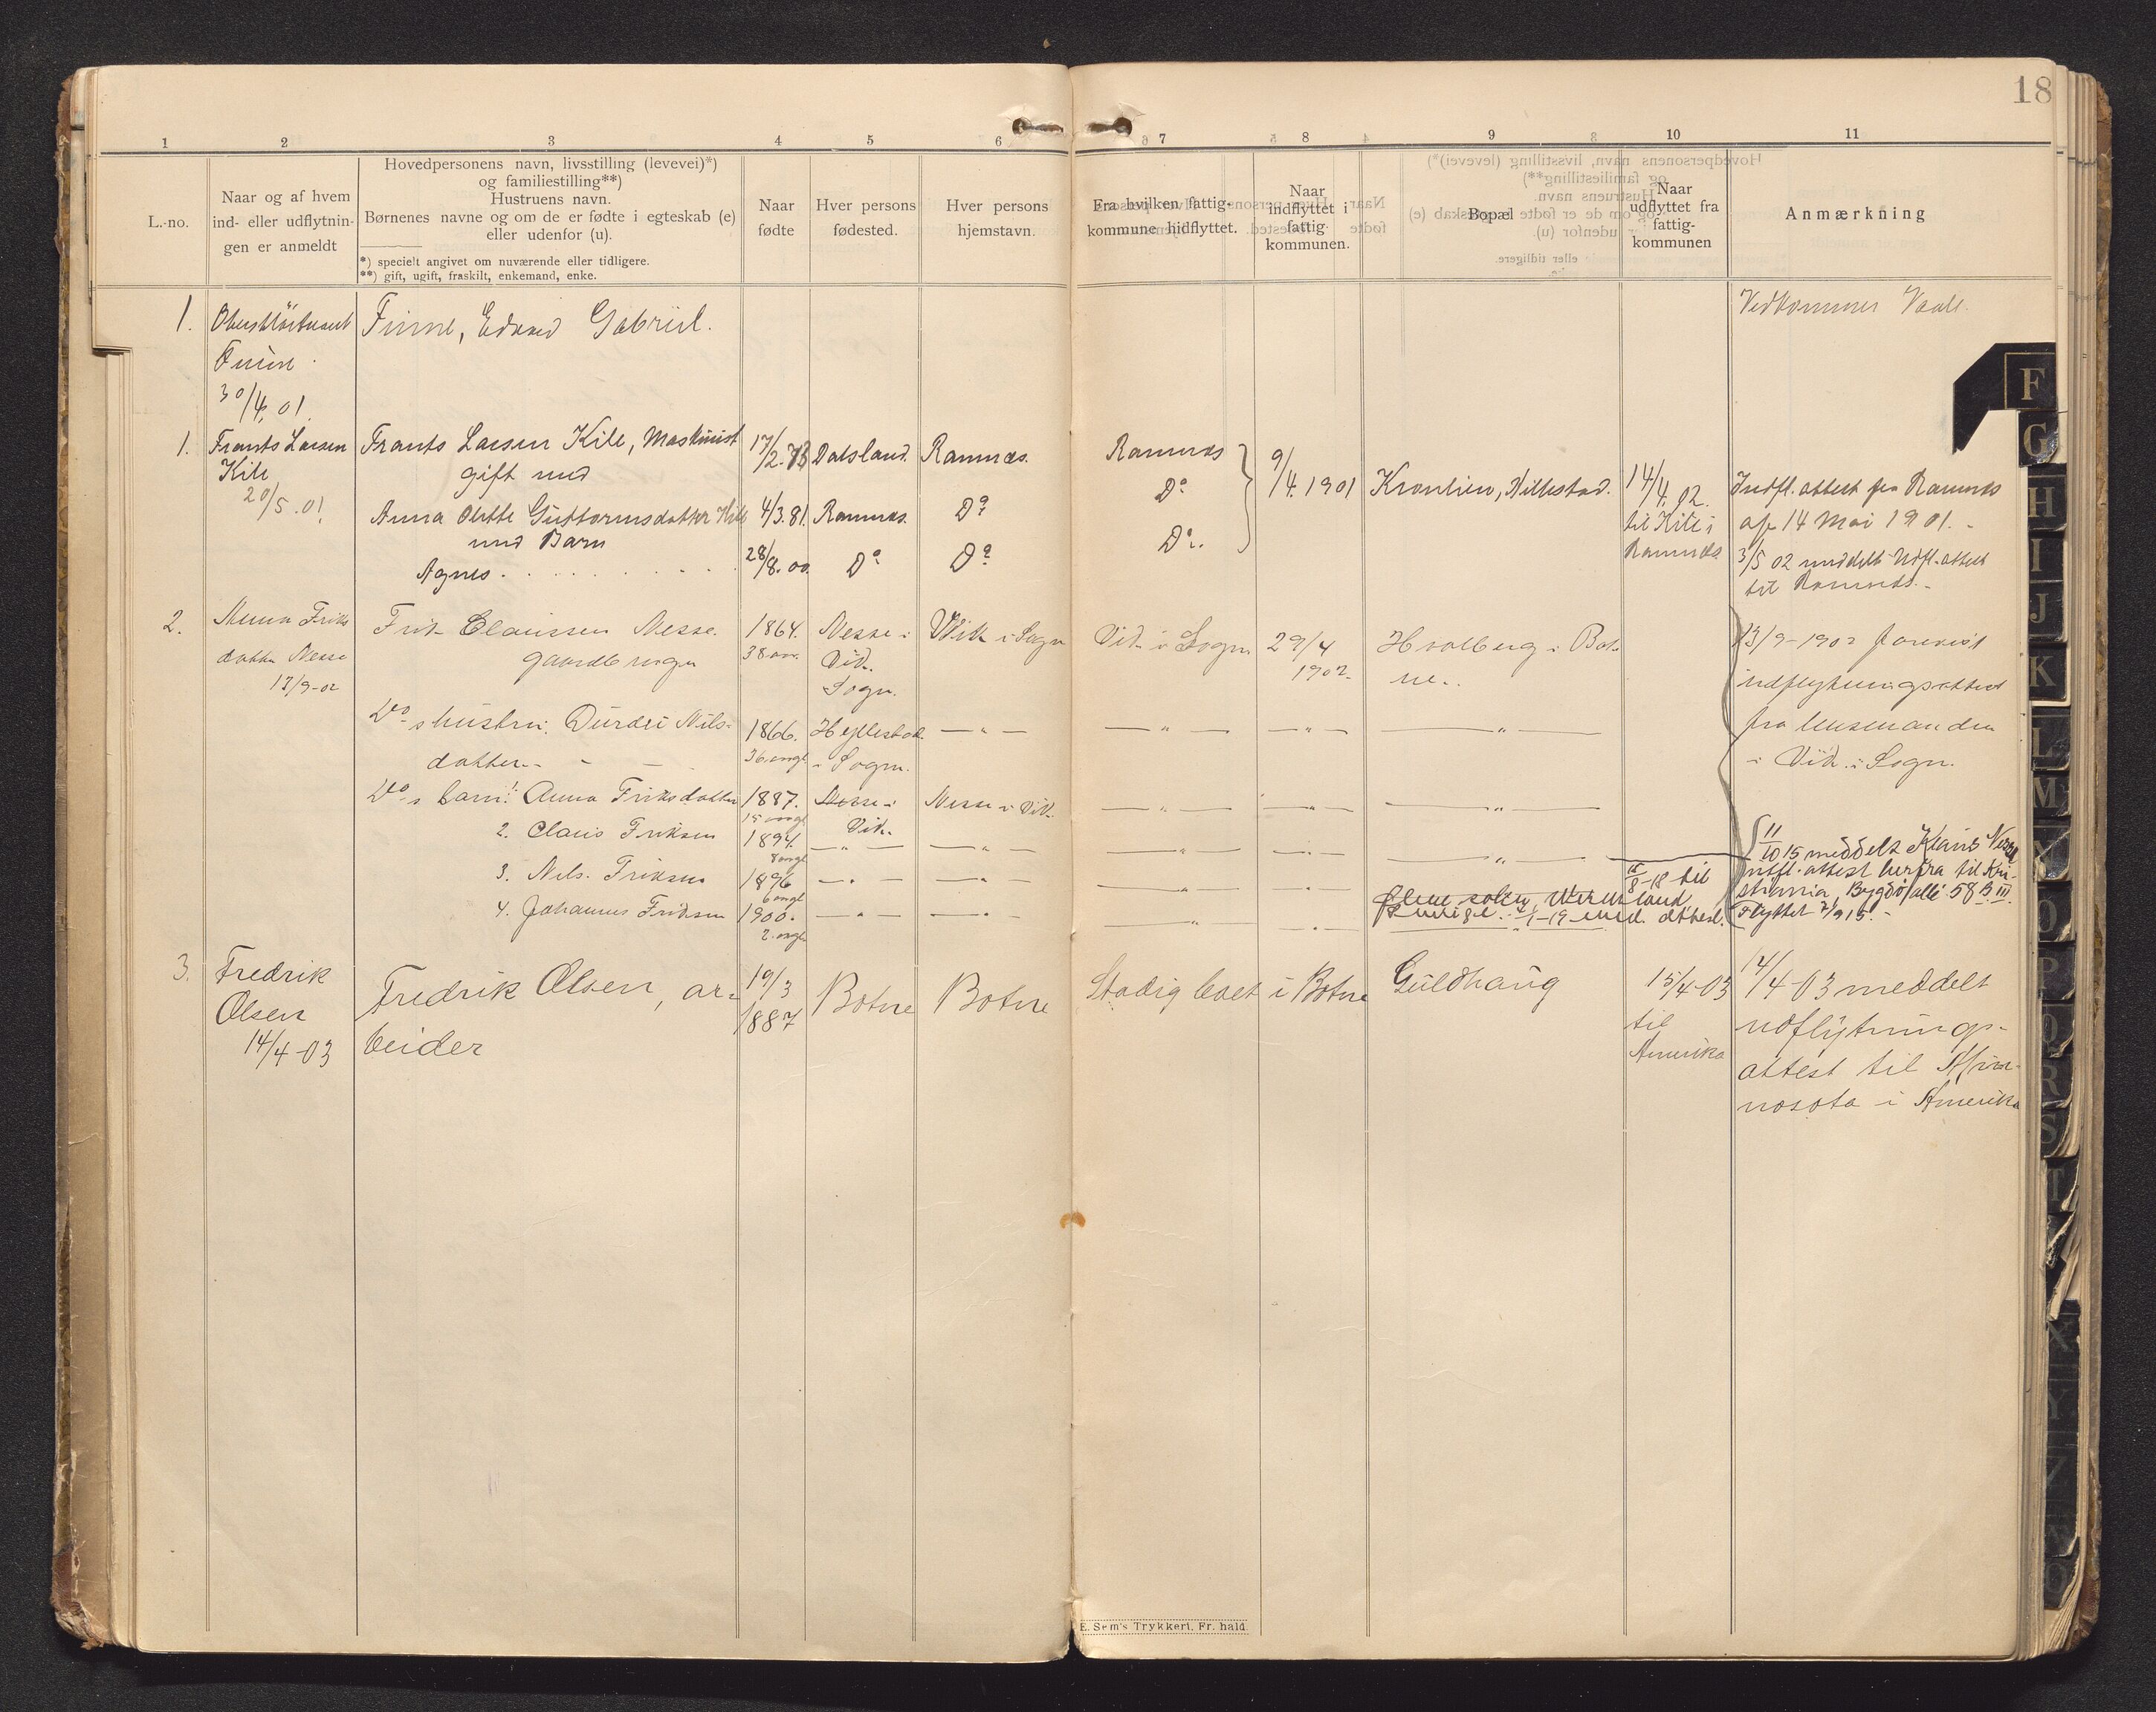 18
1 2 3 4 5 6 7 8 9 10 11
L.-no.
Naar og af hvem
ind- eller udflytnin-
gen er anmeldt
Hovedpersonens navn, livsstilling (levevei)*)
og familiestilling**)
Hustruens navn.
Børnenes navne og om de er fødte i egteskab (e)
eller udenfor (u).
*) specielt angivet om nuværende eller tidligere.
**) gift, ugift, fraskilt, enkemand, enke.
Naar
fødte
Hver persons
fødested.
Hver persons
hjemstavn.
Fra hvilken fattig-
kommune hidflyttet.
Naar
indflyttet i
fattig-
kommunen.
Bopæl
Naar
udflyttet fra
fattig-
kommunen
Anmærkning
1.
30/4. 01
Finne, Edvard Gabriel.
Vedkommer Vaale.
1.
Frants Larsen
Kile
20/5. 01
Frants Larsen Kile, Maskinist
gift med
Anna Olette Guttormsdatter Kile
med Barn
Agnes
17/2. 73
4/3. 81
28/8. 00
Dalsland.
Ramnæs.
Do
Ramnæs.
Do
Do
Ramnæs
Do
Do.
9/4. 1901
Kronlien, Hillestad.
14/4. 02
til Kile i
Ramnæs
Indfl. attest fra Ramnæs
af 14 Mai 1901. -
3/5 02 meddelt Udfl. attest
til Ramnæs. -
2.
datter Nesse
13/9-02
Frik Claussen Nesse.
gaardbruger
1864.
38 aar.
Nesse i
Vik.
Sogn.
Vik i Sogn
Vik i Sogn
29/4
1902.
Hvalberg i Bot-
ne.
13/9-1902 forevist
indflytningsattest
fra lensmanden
i Vik i Sogn.
Do s hustru: Nils-
datter
1866.
36 aargl.
i Sogn.
— " — — " — — " — — " —
Do s barn: 1. Anna Friksdatter
1887.
15 aargl
Nesse i
Vik.
Nesse i Vik.
— " — — " — — " —
2. Claus Friksen
1894.
8 aargl
— " — — " — — " — — " — — " —
3. Nils Friksen
1896
6 aargl
— " — — " — — " — — " —
4. Johannes Friksen
1900.
2 aargl.
— " — — " — — " — — " —
8-18 til
1-19 med attest.
11/10 15 meddelt Klaus Nesse
utfl. attest herfra til Kri-
stiania, Bygdø allé 58 B III.
Flyttet 7/9 15. -
3.
Fredrik
Olsen
14/4-03
Fredrik Olsen, ar-
beider
19/3
1887
Botne
Botne
Stadig boet i Botne
Guldhaug
15/4-03
til
Amerika
14/4-03 meddelt
udflytnings-
attest til Min-
nosota i Amerika
E. Sem's Trykkeri, Fr.hald.
F
G
H
I
J
K
L
M
O
P
Q
R
S
T
X
Y
Z